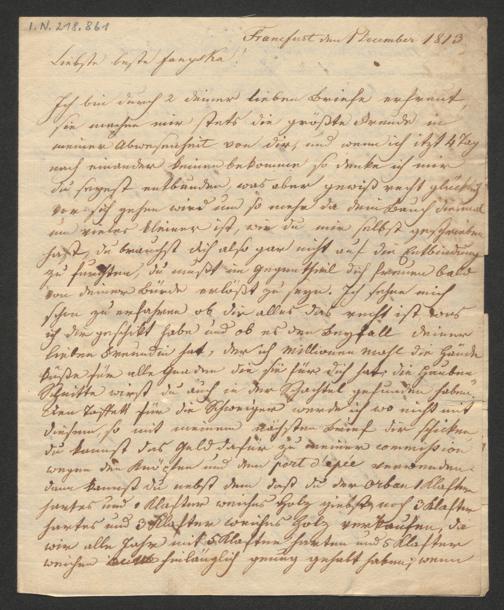 I.N. 218.861
Francfurt den 1 December 1813
Liebste beste Fanyska!
Ich bin durch 2 deiner lieben Briefe erfreut,
sie machen mir stets die größte Freude in
meiner Abwesenheit von dir, und wenn ich itzt 4 Tag
nach einander keinen bekomme so denke ich mir
du seyest entbunden was aber gewiß recht glücklich
vor sich gehen wird um so mehr da dein Bauch diesmal
um vieles kleiner ist, wie du mir selbst geschrieben
hast, du brauchst dich also gar nicht auf die Entbindung
zu fürchten, du mußt im Gegentheil dich freuen bald
von deiner Bürde erlößt zu seyn. Ich sehne mich
schon zu erfahren ob dir alles das recht ist was
ich dir geschikt habe und ob es den Beyfall deiner
lieben Freundin hat, der ich Millionen mahl die Hände
küße für alle Gnaden die sie für dich hat, die Hauben
Schnitte wirst du auch in der Schachtel gefunden haben,
den Taffett für die Schweiger werde ich wo nicht mit
diesem, so mit meinem nächsten Brief dir schicken
du kannst das Geld dafür zu meiner Commission
wegen den Knöpfen und dem port d'epee verwenden.
dann kannst du nebst dem daß du der Orban 1 Klafter
hartes und 1 Klafter weiches Holz giebst, noch 3 Klafter
hartes und 3 Klafter weiches Holz verkaufen, da
wir alle Jahre mit 5 Klafter harten und 5 Klafter
weichen hinlänglich genug gehabt haben; wenn